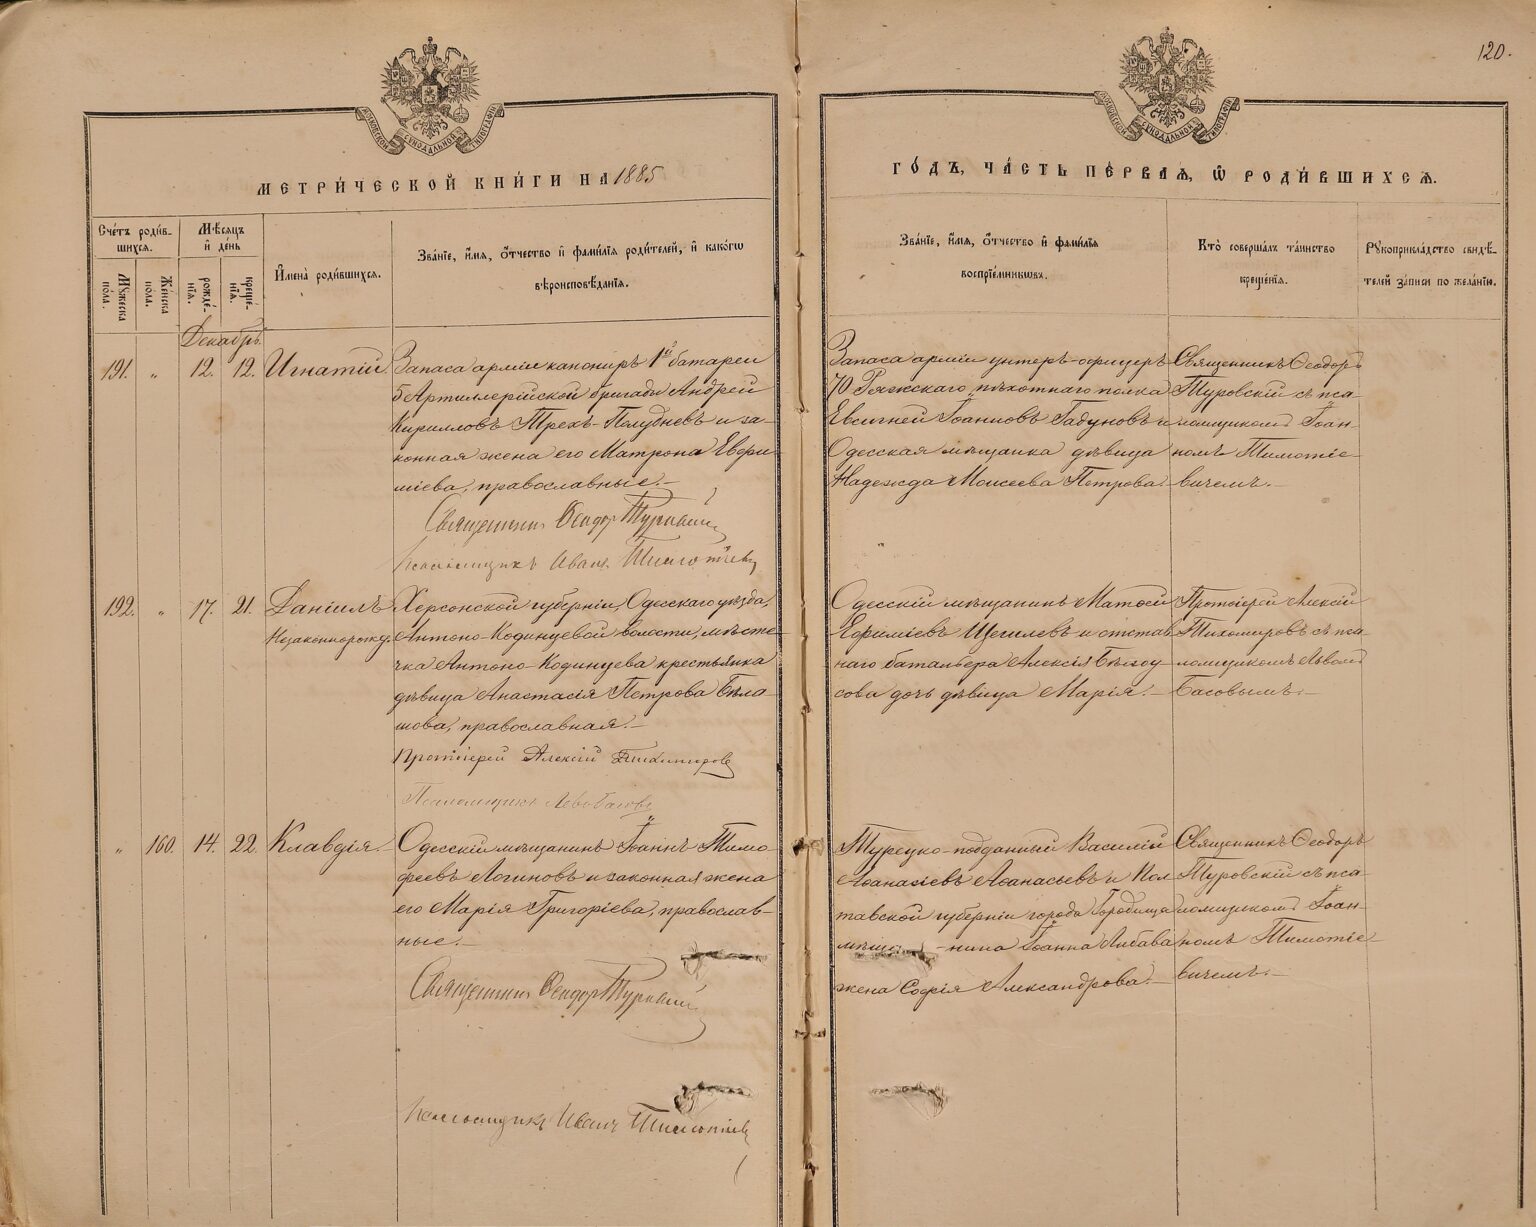 120.
МОСКОВСКОЙ СѴНОДАЛЬНОЙ ТИПОГРАФІИ
МОСКОВСКОЙ СѴНОДАЛЬНОЙ ТИПОГРАФІИ
МЕТРИ́ЧЕСКОЙ КНИ́ГИ НА 1885
ГО́ДЪ, ЧА́СТЬ ПЕ́РВАѦ, Ѽ РОДИ́ВШИХСѦ.
Сче́тъ роди́в-
шихсѧ.
Мꙋ́жеска по́ла.
Же́нска по́ла.
Мѣ́сѧцъ и҆ де́нь
рожде́-
нїѧ.
креще́-
нїѧ.
И҆мена̀ роди́вшихсѧ.
Зва́нїе, и҆́мѧ, ѻ҆́тчество и҆ фами́лїѧ роди́телей, и҆ како́гѡ
вѣроисповѣ́данїѧ.
Зва́нїе, и҆́мѧ, ѻ҆́тчество и҆ фами́лїѧ
воспрїе́мникѡвъ.
Кто̀ соверша́лъ та́инство
креще́нїѧ.
Рꙋкоприкла́дство свидѣ́-
телей за́писи по жела́нїю.
Декабрь.
191. " 12. 12. Игнатій.
Запаса арміи канониръ 1й батареи
5 Артиллерійской бригады Андрей
Кирилловъ Трехъ-Полудневъ и за-
конная жена его Матрона Евфи-
міева, православные.-
Священникъ Феодор Туровскій
Псаломщикъ Иванъ Тимотіевич
Запаса арміи унтеръ-офицеръ
70 Ряжскаго пѣхотнаго полка
Евсигней Іоанновъ Габуновъ и
Одесская мѣщанка дѣвица
Надежда Моисеева Петрова.-
Священникъ Ѳеодоръ
Туровскій съ пса-
ломщикомъ Іоан-
номъ Тимотіе-
вичемъ.-
192. " 17. 21. Даніилъ
Незаконнорожд.
Херсонской губерніи, Одесскаго уѣзда,
Антоно-Кодинцевой волости, мѣсте-
чка Антоно-Кодинцева крестьянка
дѣвица Анастасія Петрова Бѣла-
шова, православная.-
Протоіерей Алексій Тихомировъ
Псаломщикъ Левъ Басовъ
Одесскій мѣщанинъ Матѳей
Ефиміевъ Щеглевъ и отстав-
наго баталера Алексія Бѣлоу-
сова дочь дѣвица Марія.-
Протоіерей Алексій
Тихомировъ съ пса-
ломщикомъ Львомъ
Басовымъ.-
" 160. 14. 22. Клавдія.
Одесскій мѣщанинъ Іоаннъ Тимо-
феевъ Логиновъ и законная жена
его Марія Григоріева, православ-
ные.-
Священникъ Феодор Туровскій
Псаломщикъ Иванъ Тимотіевич
Турецко-подданный Василій
Аѳанасіевъ Аѳанасьевъ и Пол-
тавской губерніи города Городища
мѣща-нина Іоанна Либава
жена Софія Александрова.-
Священникъ Ѳеодоръ
Туровскій съ пса-
ломщикомъ Іоан-
номъ Тимотіе-
вичемъ.-